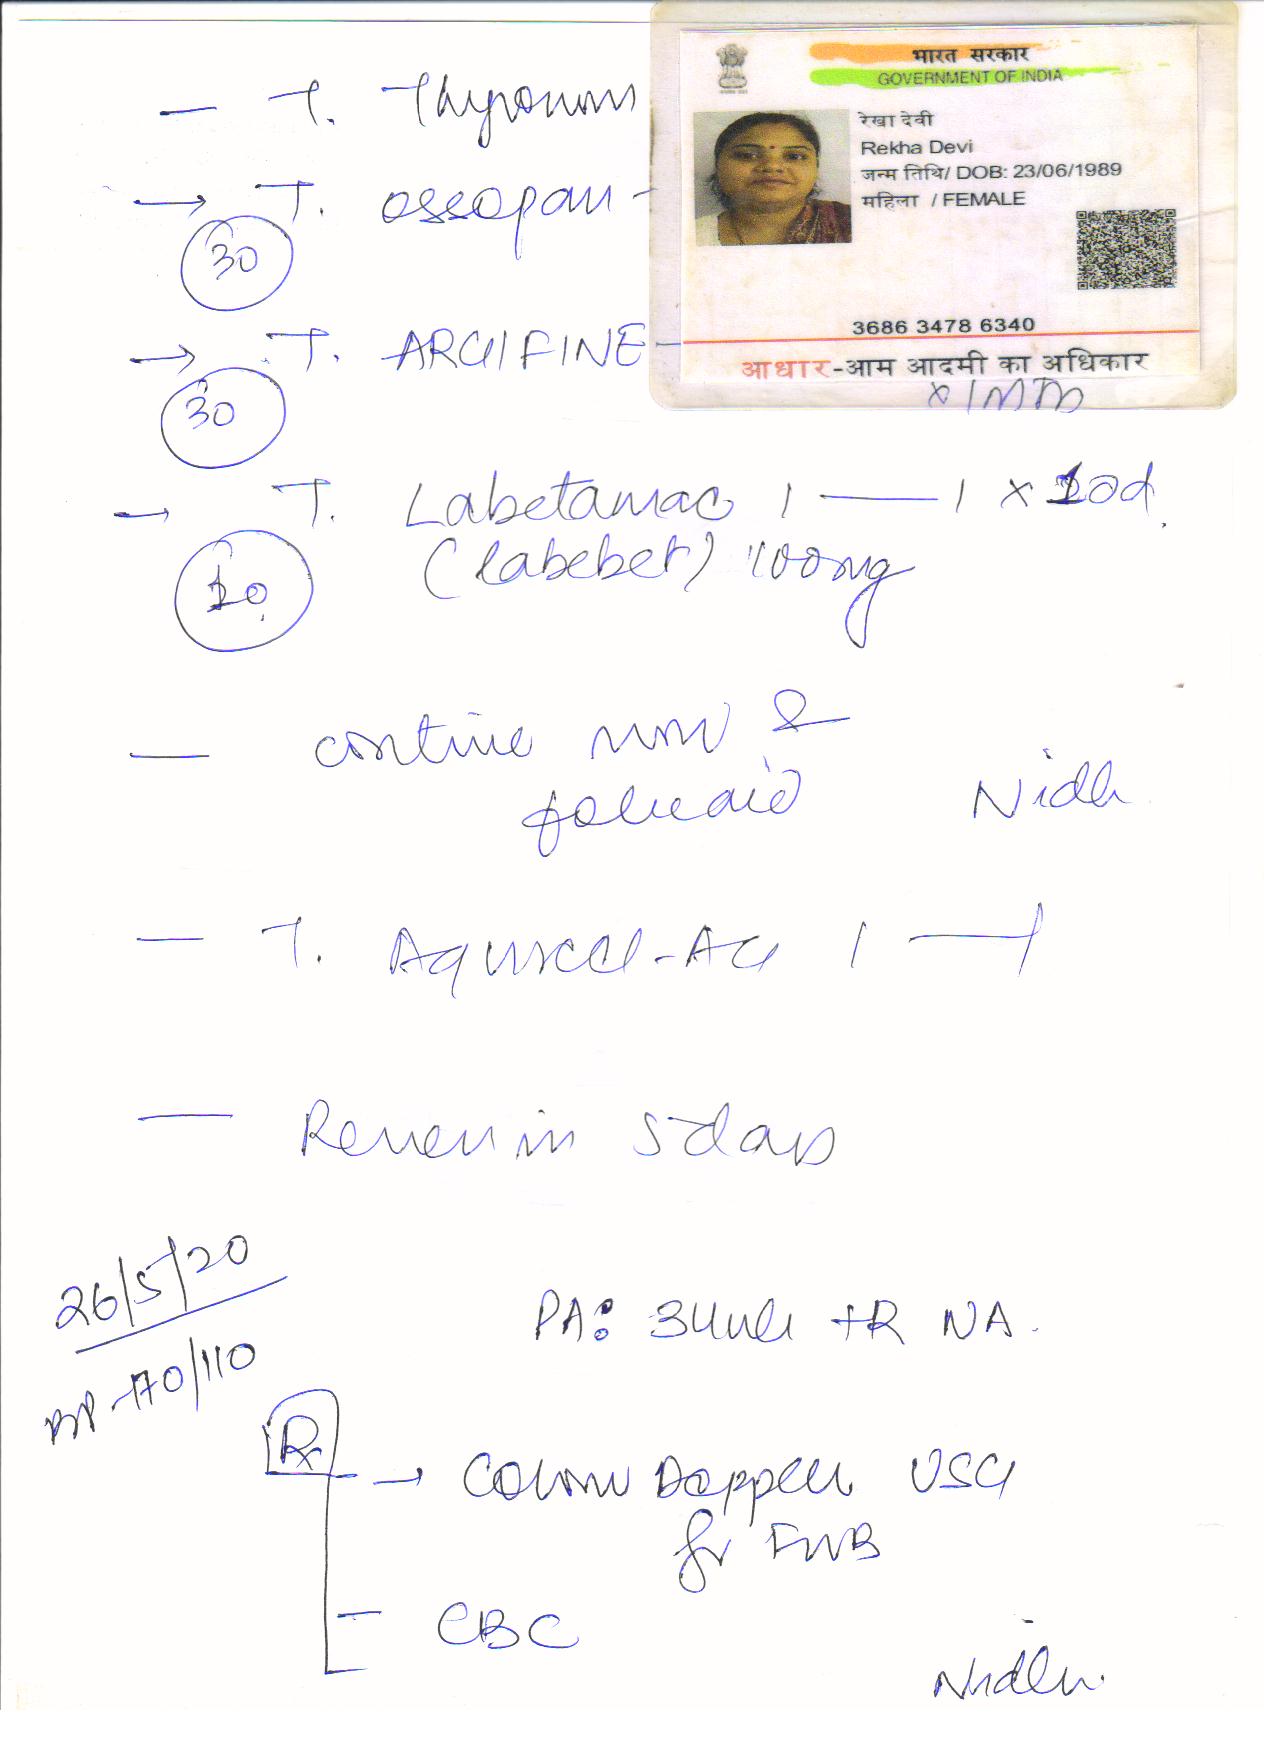 भारत सरकार
GOVERNMENT OF INDIA
रेखा देवी
Rekha Devi
जन्म तिथि/ DOB: 23/06/1989
महिला / FEMALE
3686 3478 6340
आधार-आम आदमी का अधिकार
- T. Thyronorm
→ T. ossopan -
30
→ T. ARGIFINE -
30
→ T. Labetamac 1 — 1 x 10d
(labebet) 100mg
10
- continue &
Nidhi
- T. - AG 1 — 1
- Review in 5 days
26/5/20
BP - 170/110
PA: 34 wk NA.
Rx
→ Colour Doppler USG
for FWB
- CBC
Nidhi